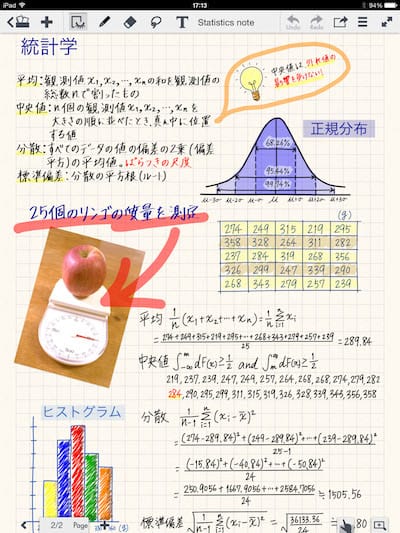 iPad
17:13
94%
Statistics note
統計学
平均:観測値x1,x2,…,xnの和を観測値の
総数nで割ったもの
中央値:n個の観測値x1,x2,…,xnを
大きさの順に並べたとき、真ん中に位置
する値
分散:すべてのデータの値の偏差の2乗(偏差
平方)の平均値。ばらつきの尺度
標準偏差:分散の平方根(ルート)
中央値は外れ値の
影響を受けない!
正規分布
68.26%
95.44%
99.74%
μ-3σ μ-2σ μ-σ μ μ+σ μ+2σ μ+3σ
25個のリンゴの質量を測定
(g)
274 249 315 219 295
358 328 264 311 282
237 284 319 268 356
326 299 347 339 290
268 343 279 257 239
平均 1/n (x1+x2+…+xn)=1/n Σ xi
= 274+249+315+219+295+…+268+343+279+257+239 / 25 =289.84
中央値 ∫ dF(x)≧1/2 and ∫ dF(x)≧1/2
219, 237, 239, 247, 249, 257, 264, 268, 268, 274, 279, 282
284, 290, 295, 299, 311, 315, 319, 326, 328, 339, 343, 356, 358
ヒストグラム
分散 1/(n-1) Σ (xi-x̄)²
= (274-289.84)²+(249-289.84)²+…+(239-289.84)² / 25-1
= (-15.84)²+(-40.84)²+…+(-50.84)² / 24
= 250.9056+1667.9056+…+2584.7056 / 24 ≒1505.56
標準偏差 √ 1/(n-1) Σ (xi-x̄)² = √ 36133.36 / 24
80
2/2 Page